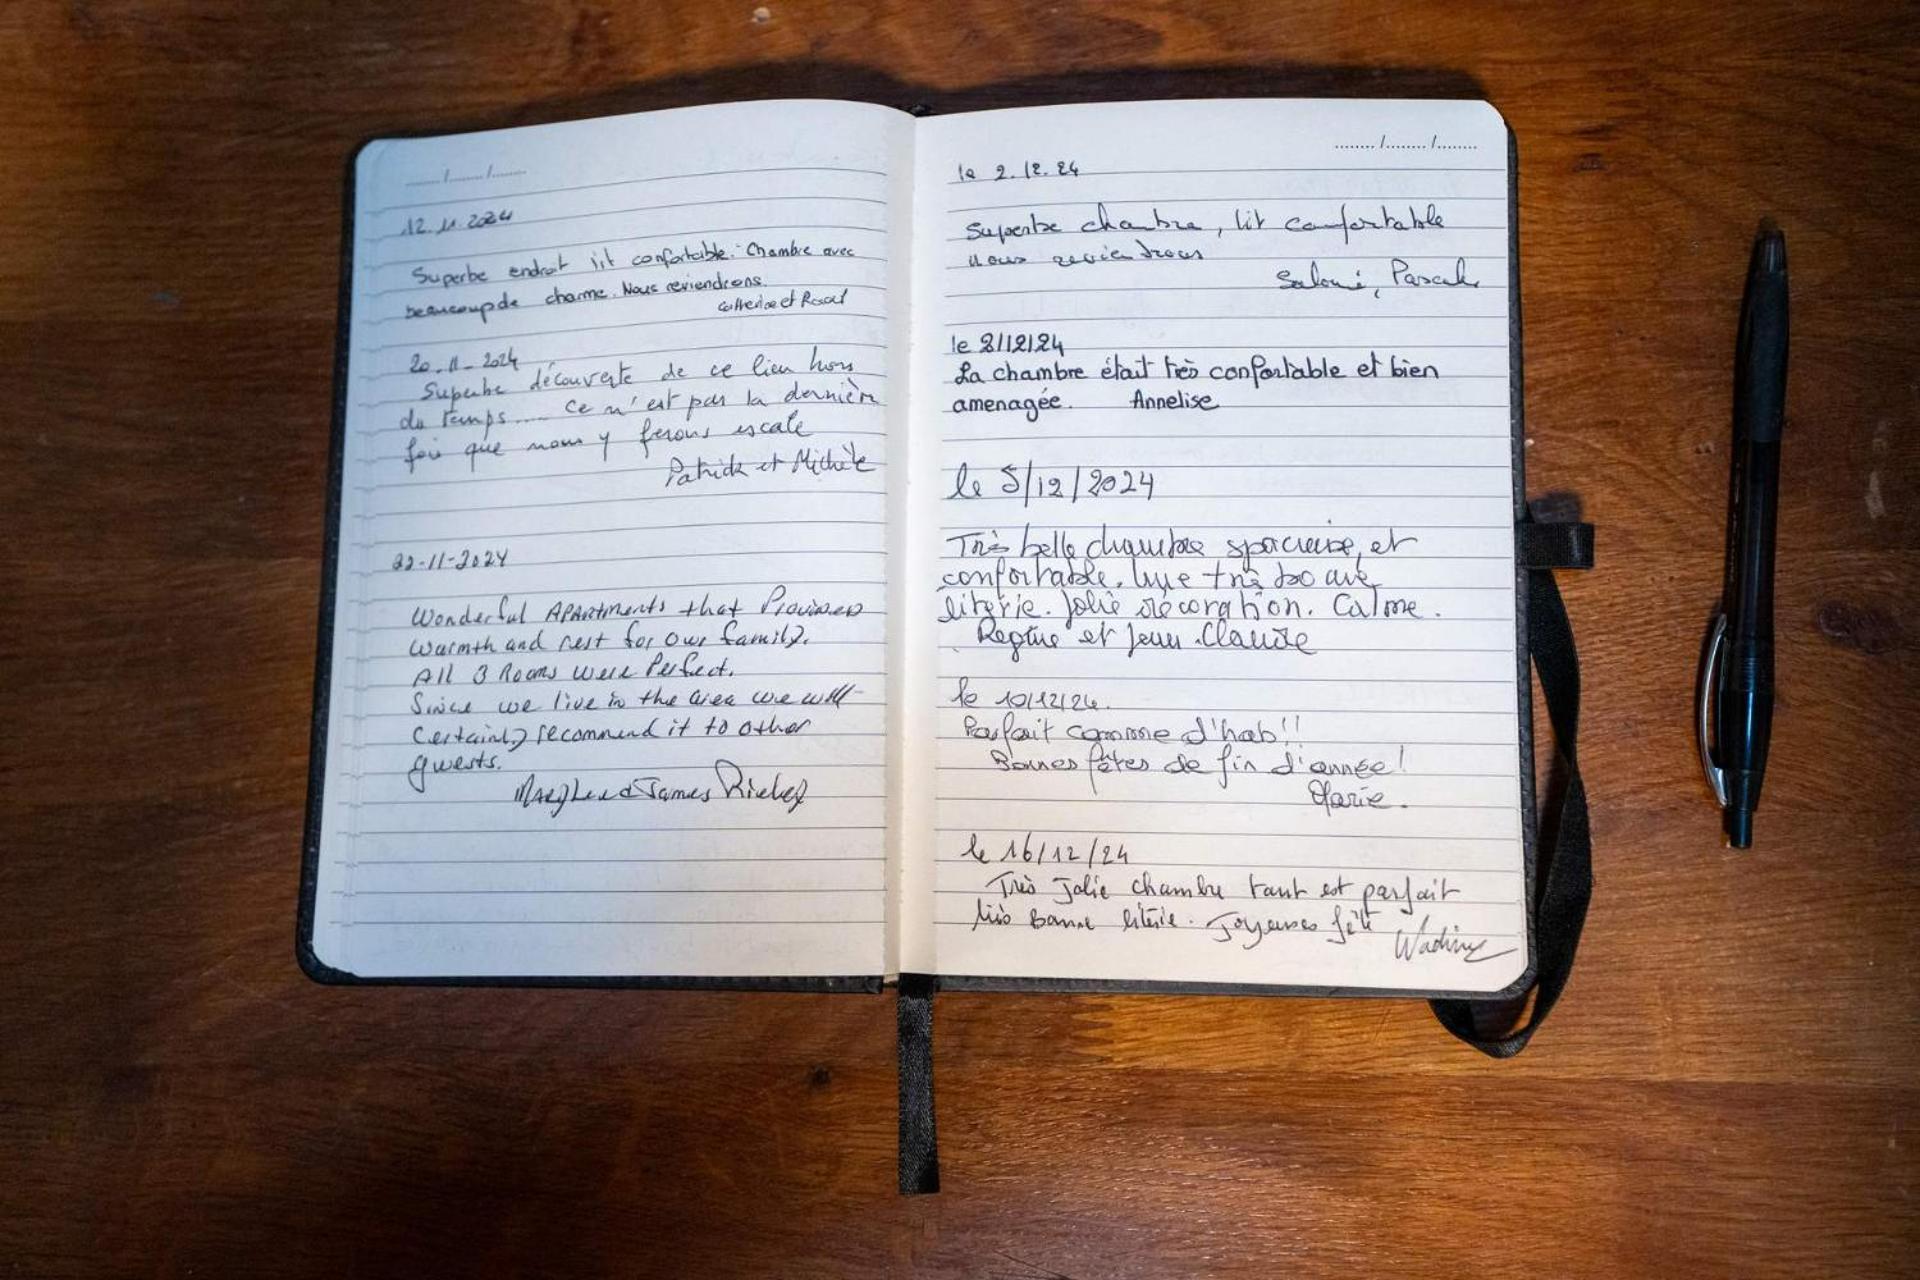 ....... /....... /.......
12.11.2024
Superbe endroit lit confortable. Chambre avec
beaucoup de charme. Nous reviendrons.
Catherine et
20-11-2024
Superbe découverte de ce lieu hors
du temps..... ce n'est pas la dernière
fois que nous y ferons escale
Patrick et Michèle
22-11-2024
Wonderful Apartments that Provided
warmth and rest for our family.
All 3 Rooms were Perfect.
Since we live in the area we will
certainly recommend it to other
guests.
and James
........ /........ /........
le 2.12.24
Superbe chambre, lit confortable
nous reviendrons
Salomé, Pascale
le 3/12/24
La chambre était très confortable et bien
amenagée. Annelise
le 5/12/2024
Très belle chambre spacieuse, et
confortable. Une très bonne
literie. Jolie décoration. Calme.
Regine et Jean-Claude
le 10/12/24.
Parfait comme d'hab!!
Bonnes fêtes de fin d'année!
Marie.
le 16/12/24
Très Jolie chambre tout est parfait
très Bonne literie. Joyeuses fête